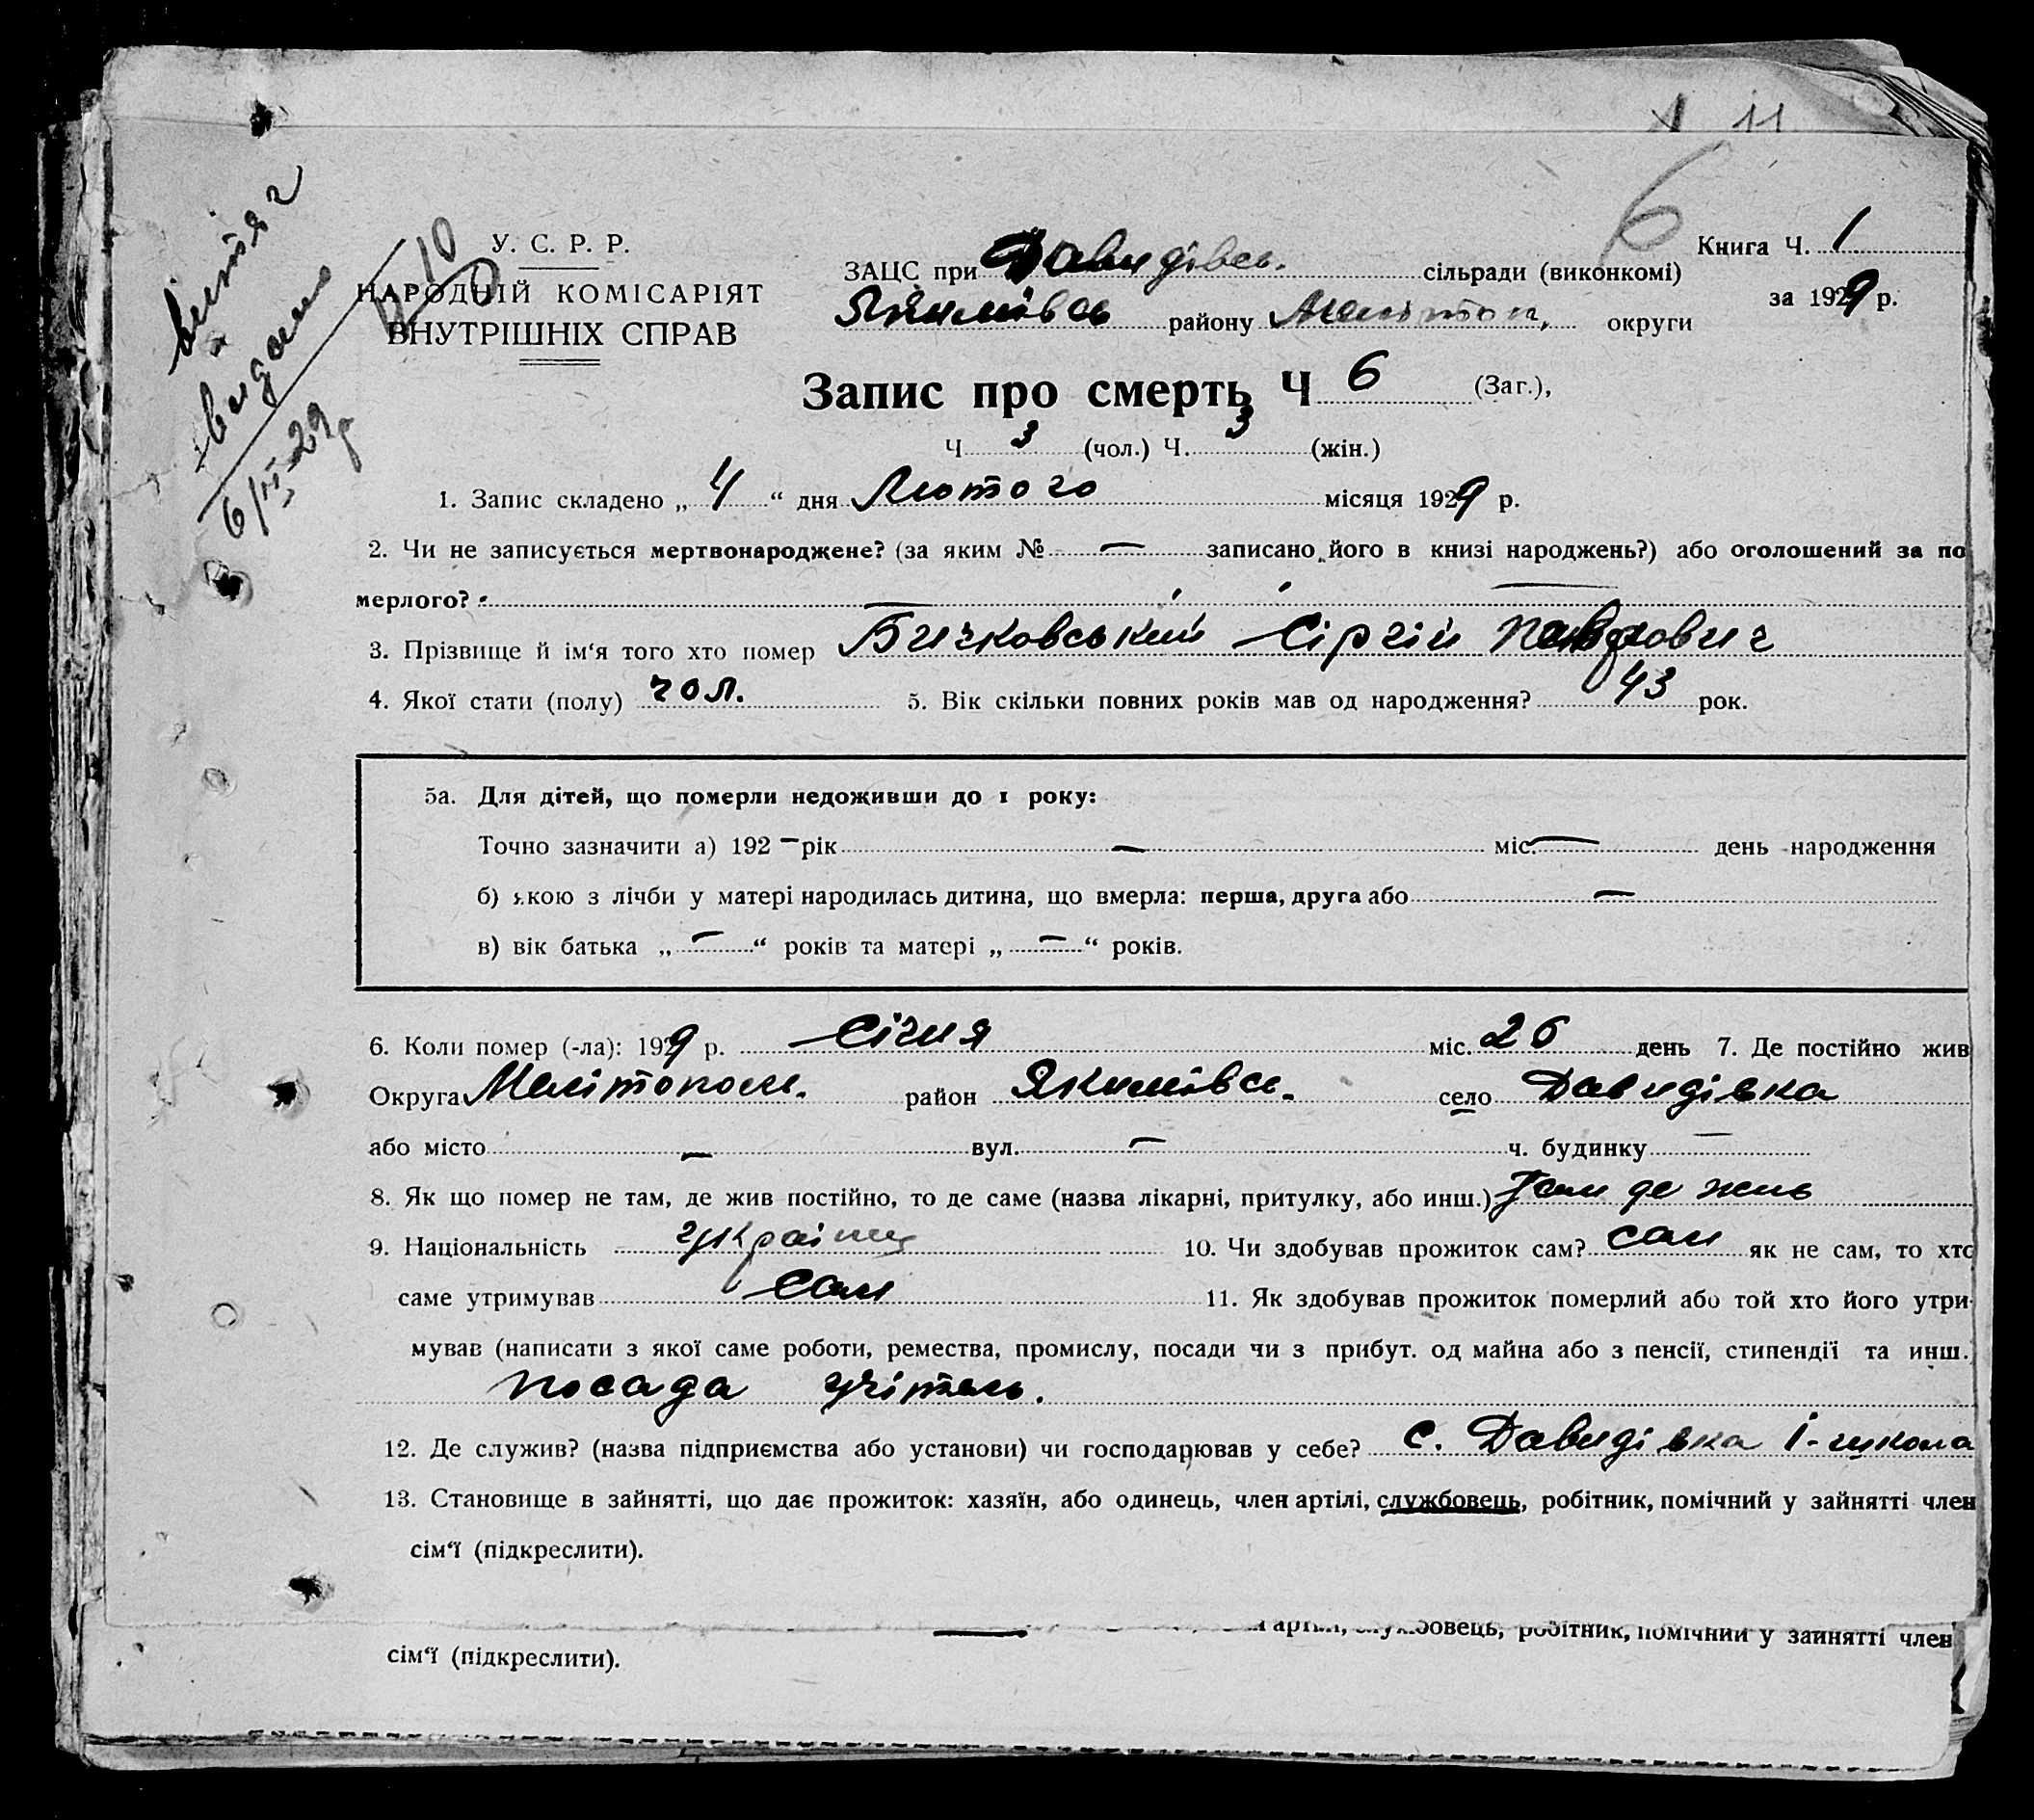 11
6
витяг
видано
6/II-29р
10
У. С. Р. Р.
НАРОДНІЙ КОМІСАРІЯТ
ВНУТРІШНІХ СПРАВ
ЗАЦС при Давидівсь. сільради (виконкомі)
Якимівсь району Мелітоп. округи
Книга Ч. 1
за 1929 р.
Запис про смерть Ч 6 (Заг.),
Ч 3 (чол.) Ч. 3 (жін.)
1. Запис складено „ 4 “ дня Лютого місяця 1929 р.
2. Чи не записується мертвонароджене? (за яким № — записано його в книзі народжень?) або оголошений за по
мерлого?
3. Прізвище й ім‘я того хто помер Бичковський Сіргій Павлович
4. Якої стати (полу) чол. 5. Вік скільки повних років мав од народження? 43 рок.
5а. Для дітей, що померли недоживши до 1 року:
Точно зазначити а) 192 — рік — міс. — день народження
б) якою з лічби у матері народилась дитина, що вмерла: перша, друга або —
в) вік батька „ — “ років та матері „ — “ років.
6. Коли помер (-ла): 1929 р. Січня міс. 26 день 7. Де постійно жив
Округа Мелітополь. район Якимівсь. село Давидівка
або місто — вул. — ч. будинку —
8. Як що помер не там, де жив постійно, то де саме (назва лікарні, притулку, або инш.) Там де жив
9. Національність україниц 10. Чи здобував прожиток сам? сам як не сам, то хто
саме утримував сам 11. Як здобував прожиток померлий або той хто його утри-
мував (написати з якої саме роботи, ремества, промислу, посади чи з прибут. од майна або з пенсії, стипендії та инш.
посада учітель.
12. Де служив? (назва підприємства або установи) чи господарював у себе? с. Давидівка І-школа
13. Становище в зайнятті, що дає прожиток: хазяїн, або одинець, член артілі, службовець, робітник, помічний у зайнятті член
сім‘ї (підкреслити).
артілі, службовець, робітник, помічний у зайнятті член
сім‘ї (підкреслити).